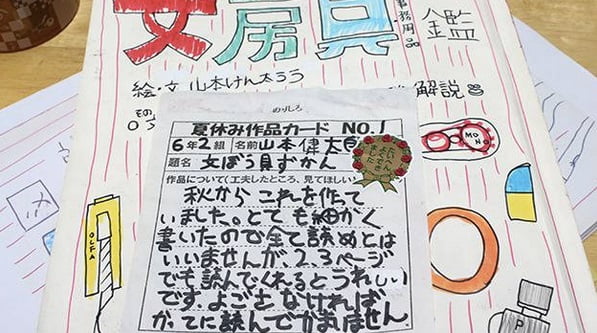 文房具
事務用品
鑑
絵・文 山本けん太ろう
解説
のりしろ
夏休み作品カード NO.1
6年2組 名前 山本健太郎
題名 文ぼう具ずかん
たいへんよくできました
作品について(工夫したところ、見てほしい
秋から これを作て
いました。とても細かく
書いたので全て読めとは
いいませんが、2.3ページ
でも読んでくれるとうれしい
です。よごさなければ
かってに読んでかまいません。
OLFA
MONO